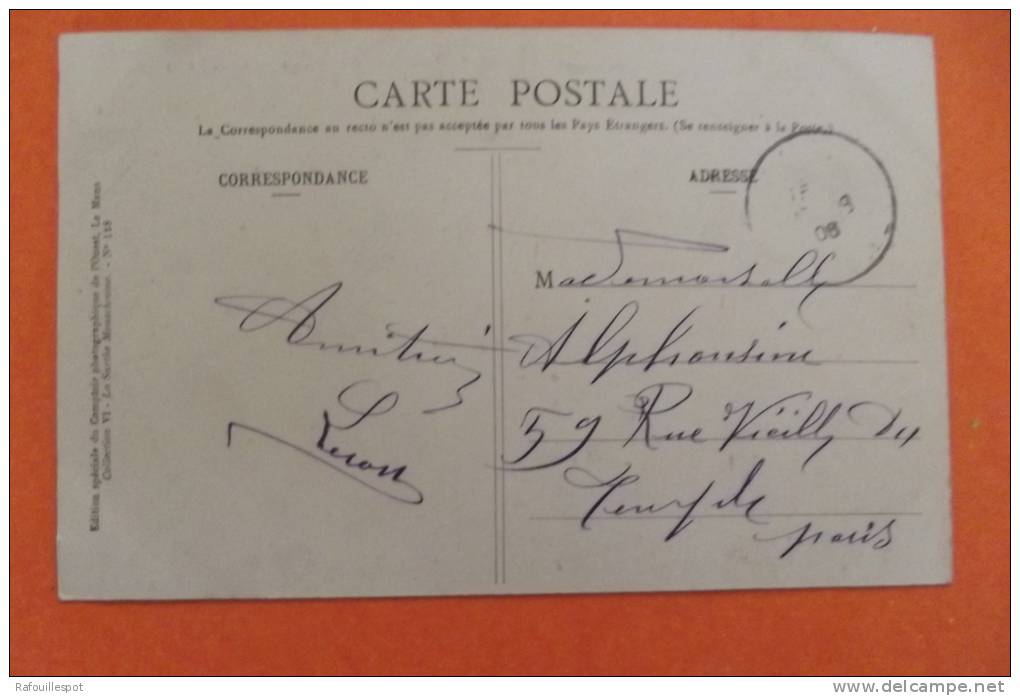 CARTE POSTALE
La Correspondance au recto n'est pas acceptée par tous les Pays Etrangers. (Se renseigner à la Poste.)
CORRESPONDANCE
ADRESSE
08
Mademoiselle
Alphonsine
59 Rue Vieille du
Temple
paris
Amitié
Edition spéciale du Comptoir photographique de l'Ouest, Le Mans
Collection VI - La Sarthe - N° 118
Rafouillespot
www.delcampe.net